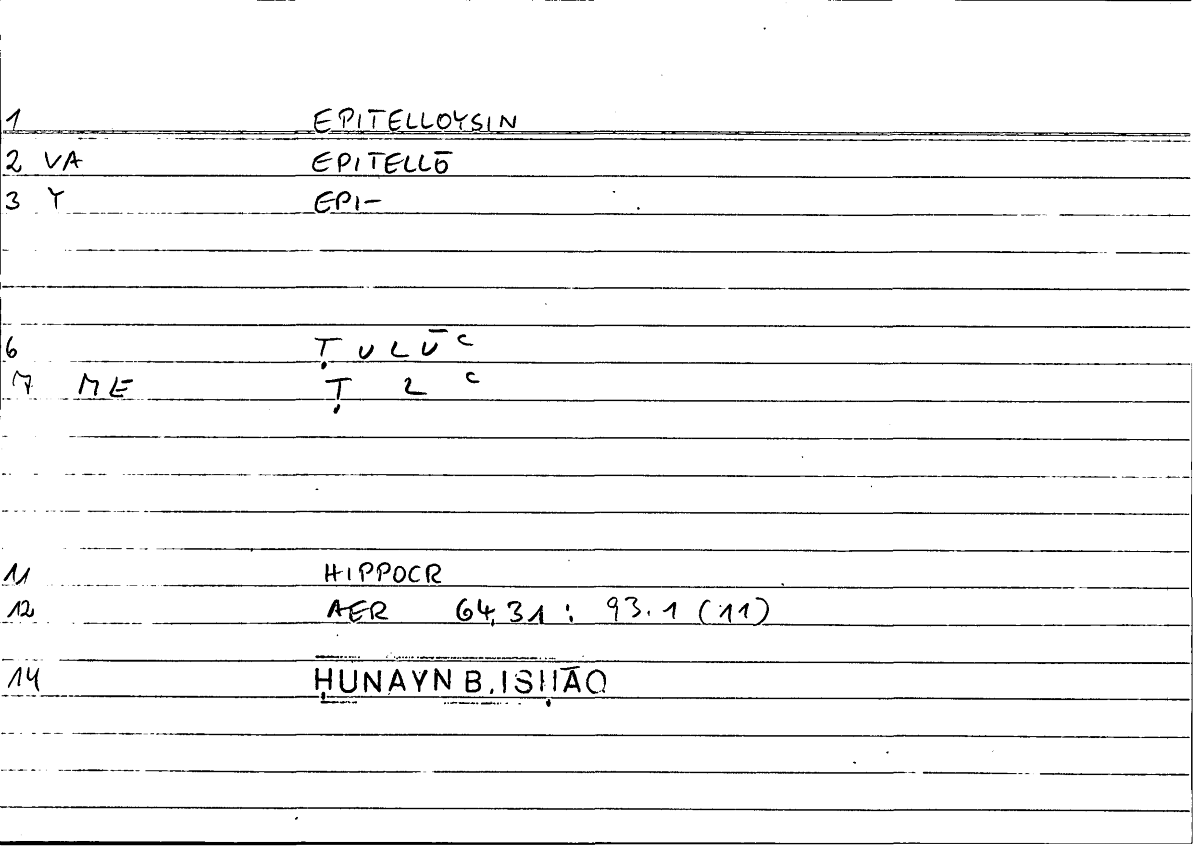 1 EPITELLOYSIN
2 VA EPITELLŌ
3 Y EPI-
6 Ṭ U L Ū ͨ
7 ME Ṭ L ͨ
11 HIPPOCR
12 AER 64,31 : 93.1 (11)
14 ḤUNAYN B. ISḤĀQ